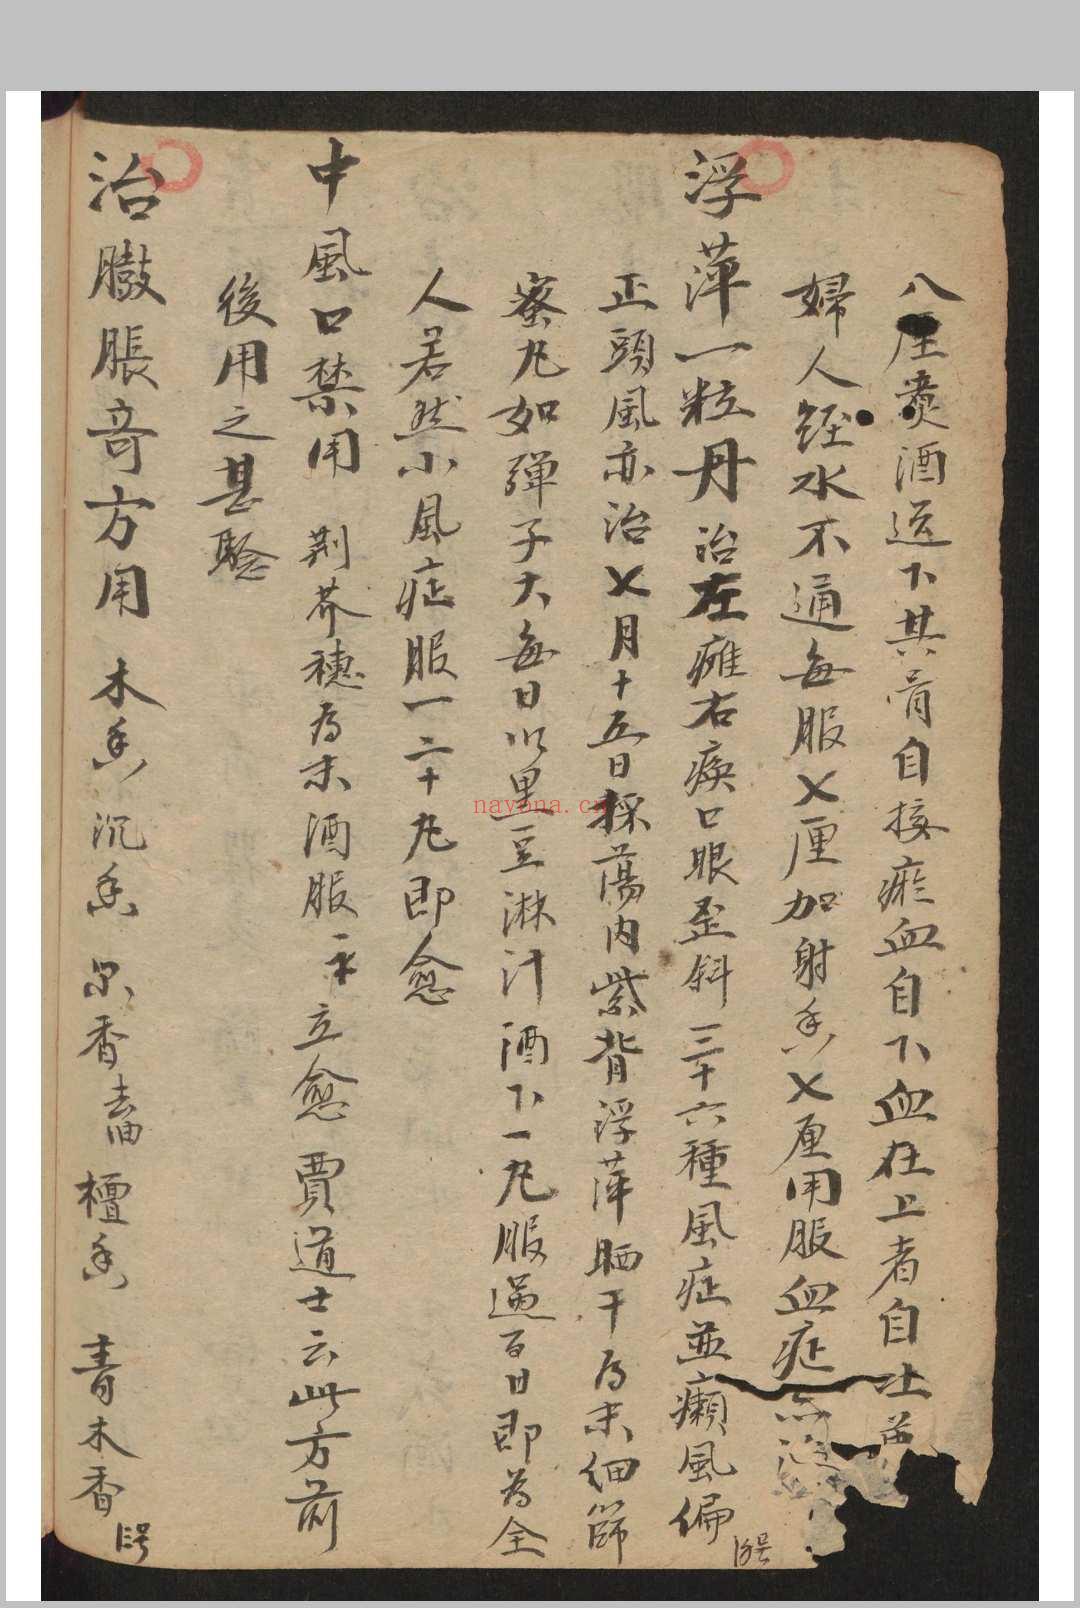 八厘熱酒送下其骨自接瘀血自下血在上者自吐
婦人經水不通每服乂厘加射香乂厘用服血症
浮萍一粒丹治左瘫右痪口眼歪斜三十六種風症並癩風偏
正頭風亦治乂月十五日採蕩内紫背浮萍晒干为末细篩
蜜丸如彈子大每日以黑豆淋汁酒下一丸服過百日即為全
人若然小風症服一二十丸即愈
中風口禁用 荆芥穗为末酒服立愈 賈道士云此方前
後用之甚驗
治臌脹奇方用 木香 沉香 香去油 檀香 青木香
navona.cn